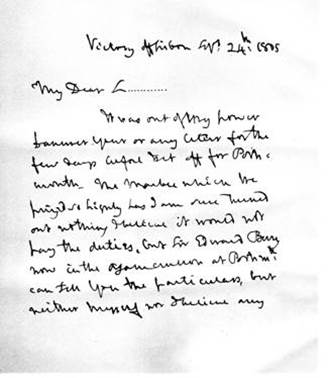 Victory off Lisbon Sepr. 24th. 1805
My Dear L............
It was out of My power
to answer Your or any letter for the
few days before I set off for Ports-
mouth. The Marble which he
prized so highly has I am sure turned
out nothing I believe it would not
pay the duties, but Sir Edward Berry
now in the Agamemnon at Portsmth
can tell You the particulars, but
neither Myself nor I believe any